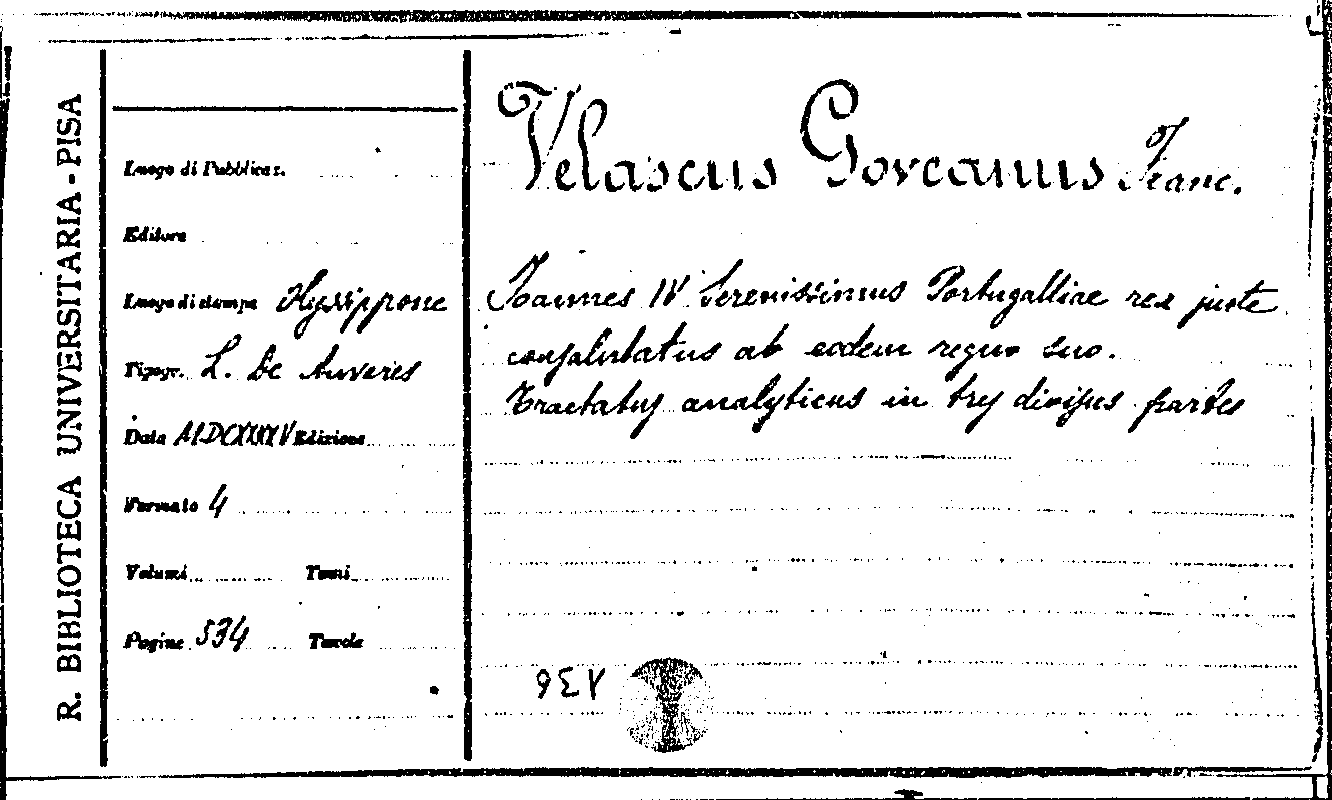 R. BIBLIOTECA UNIVERSITARIA - PISA
Luogo di Pubblicaz.
Editore
Luogo di stampa Olyssippone
Tipogr. L. De Anveres
Data MDCXXXXV Edizione
Formato 4
Volumi Tomi
Pagine 534 Tavole
Velascus Goveanus Franc.
Ioannes IV Serenissimus Portugalliae rex juste
consalutatus ab eodem regno suo.
Tractatus analyticus in tres divisus partes